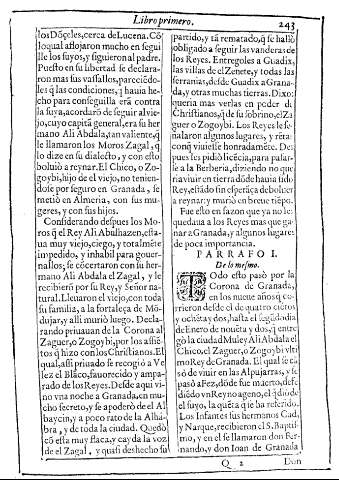 Libro primero. 243
los Dõçeles, cerca de Lucena. Cõ
lo qual afloxaron mucho en segui
lle los suyos, y siguieron al padre.
Puesto en su libertad se declara-
ron mas sus vassallos, pareciẽdo-
les q̃ las condiciones, q̃ hauia he-
cho para conseguilla erã contra
la suya, acordarõ de seguir al vie-
jo, cuyo capitã general, era su her
mano Ali Abdala, tan valiente, q̃
le llamaron los Moros Zagal, q̃
lo dize en su dialecto, y con esto
boluiò a reynar. El Chico, o Zo-
goybi, hijo de el viejo, no tenien-
dose por seguro en Granada, se
metiò en Almeria, con sus mu-
geres, y con sus hijos.
Considerando despues los Mo-
ros q̃ el Rey Ali Abulhazen, esta-
ua muy viejo, ciego, y totalmẽte
impedido, y inhabil para gouer-
nallos, se cõcertaron con su her-
mano Ali Abdala el Zagal, y le
recibierõ por su Rey, y Señor na-
tural. Lleuaron el viejo, con toda
su familia, a la fortaleça de Mõ-
dujar, y alli muriò luego. Decla-
rando priuauan de la Corona al
Zaguer, o Zogoybi, por los assiẽ-
tos q̃ hizo con los Christianos. El
qual, assi priuado se recogiò a Ve
lez el Blãco, fauorecido y ampa-
rado de los Reyes. Desde aqui vi-
no vna noche a Granada, en mu-
cho secreto, y se apoderò de el Al
baycin, y a poco rato de la Alhã-
bra, y de toda la ciudad. Quedò
cõ esta muy flaca, y cayda la voz
de el Zagal, y quasi deshecho su
partido, y tã rematado, q̃ se hallò
obligado a seguir las vanderas de
los Reyes. Entregoles a Guadix,
las villas de el Zenete, y todas las
serranias, desde Guadix a Grana-
da, y otras muchas tierras. Dixo:
queria mas verlas en poder de
Christianos, q̃ de su sobrino, el Za
guer o Zogoybi. Los Reyes le se-
ñalaron algunos lugares, y rẽta:
conq̃ viuiesse honradamẽte. Des
pues les pidiò licẽcia, para passar-
se a la Berberia, diziendo no que
ria viuir en tierra dõde hauia sido
Rey, estãdo sin esperãça de boluer
a reynar: y muriò en breue tiẽpo.
Fue esto en sazon que ya no le
quedaua a los Reyes mas que ga-
nar a Granada, y algunos lugares
de poca importancia.
PARRAFO I.
De lo mesmo.
TOdo esto passò por la
Corona de Granada,
en los nueue años q̃ co-
rrieron desde el de quatro cientos
y ochẽta y dos, hasta el segũdo dia
de Enero de nouẽta y dos, q̃ entre
gò la ciudad Muley Ali Abdala el
Chico, el Zaguer, o Zogoybi vlti
mo Rey de Granada. El qual se ca
só de viuir en las Alpujarras, y se
passò a Fez, dõde fue muerto, defẽ
diẽdo vn Reyno ageno, el q̃ diò de
el suyo, la quẽta q̃ he referido.
Los Infantes sus hermanos Cad,
y Narque, recibieron el S. Baptis-
mo, y en el se llamaron don Fer-
nando, y don Ioan de Granada
Q 2 Don